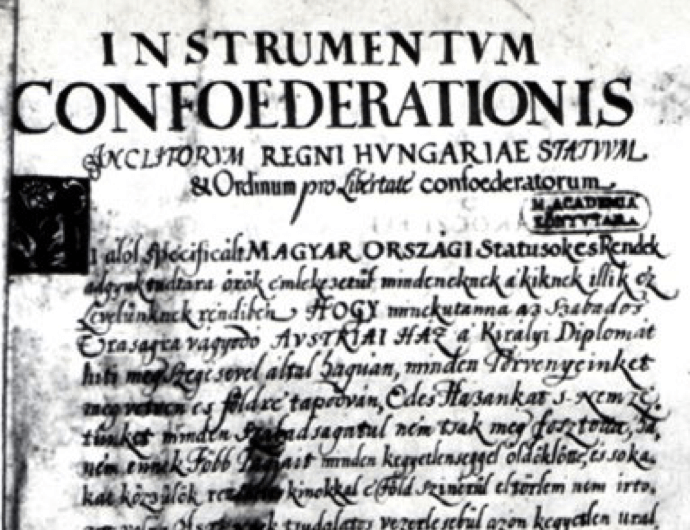 INSTRUMENTVM
CONFOEDERATIONIS
INCLITORVM REGNI HVNGARIAE STATVVM
& Ordinum pro Libertate confoederatorum
M. ACADEMIA
KÖNYVTÁRA
alól specificált MAGYAR ORSZÁGI Statusok es Rendek
adgyuk tudtára örök emlekezetül mindeneknek a' kiknek illik ez
Levelünknek rendiben HOGY minekutanna az Szabados
Vraságra vágyodó AVSTRIAI HAZ a' Királyi Diplomát
hiti meg szegésével által hágván, minden Törvenyeinket
megvetven és földre tapodván, Edes Hazánkat s Nemze
tünket minden Szabadságátul nem tsak meg fosztotta, há
nem ennek Főbb minden kegyetlenséggel öldöklötte, és soka
kat közzülök kinokkal e' Föld Szinérül el törlem nem irto
tsudálatos vezerlesebül azon kegyetlen ural